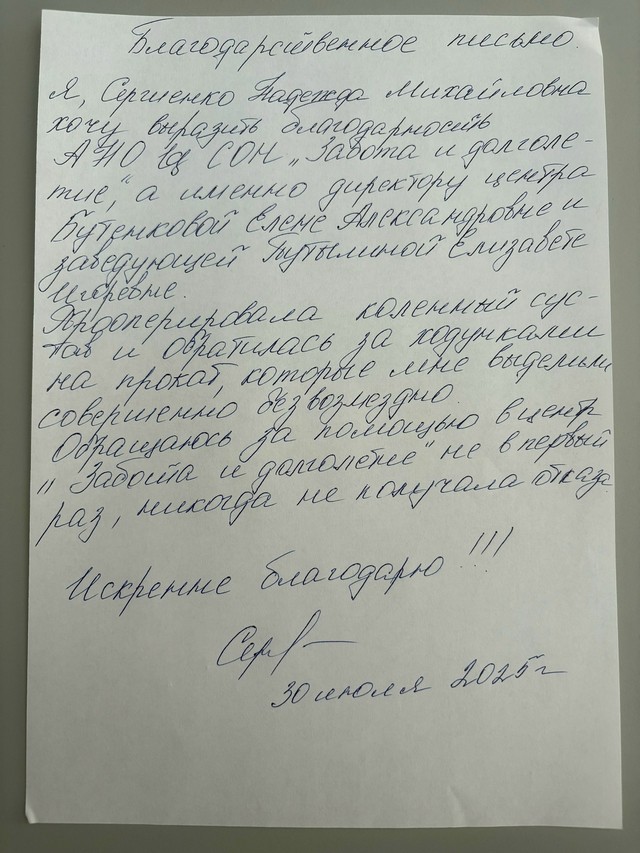 Благодарственное письмо.
Я, Сергиенко Надежда Михайловна
хочу выразить благодарность
АНО ЦСОН „Забота и долголе-
тие", а именно директору центра
Бутенковой Елене Александровне и
заведующей Путылиной Елизавете
Игоревне.
Прооперировала коленный сус-
тав и обратилась за ходунками
на прокат, которые мне выделили
совершенно безвозмездно.
Обращаюсь за помощью в центр
„Забота и долголетие" не в первый
раз, никогда не получала отказа.
Искренне благодарю!!!
30 июля 2025г